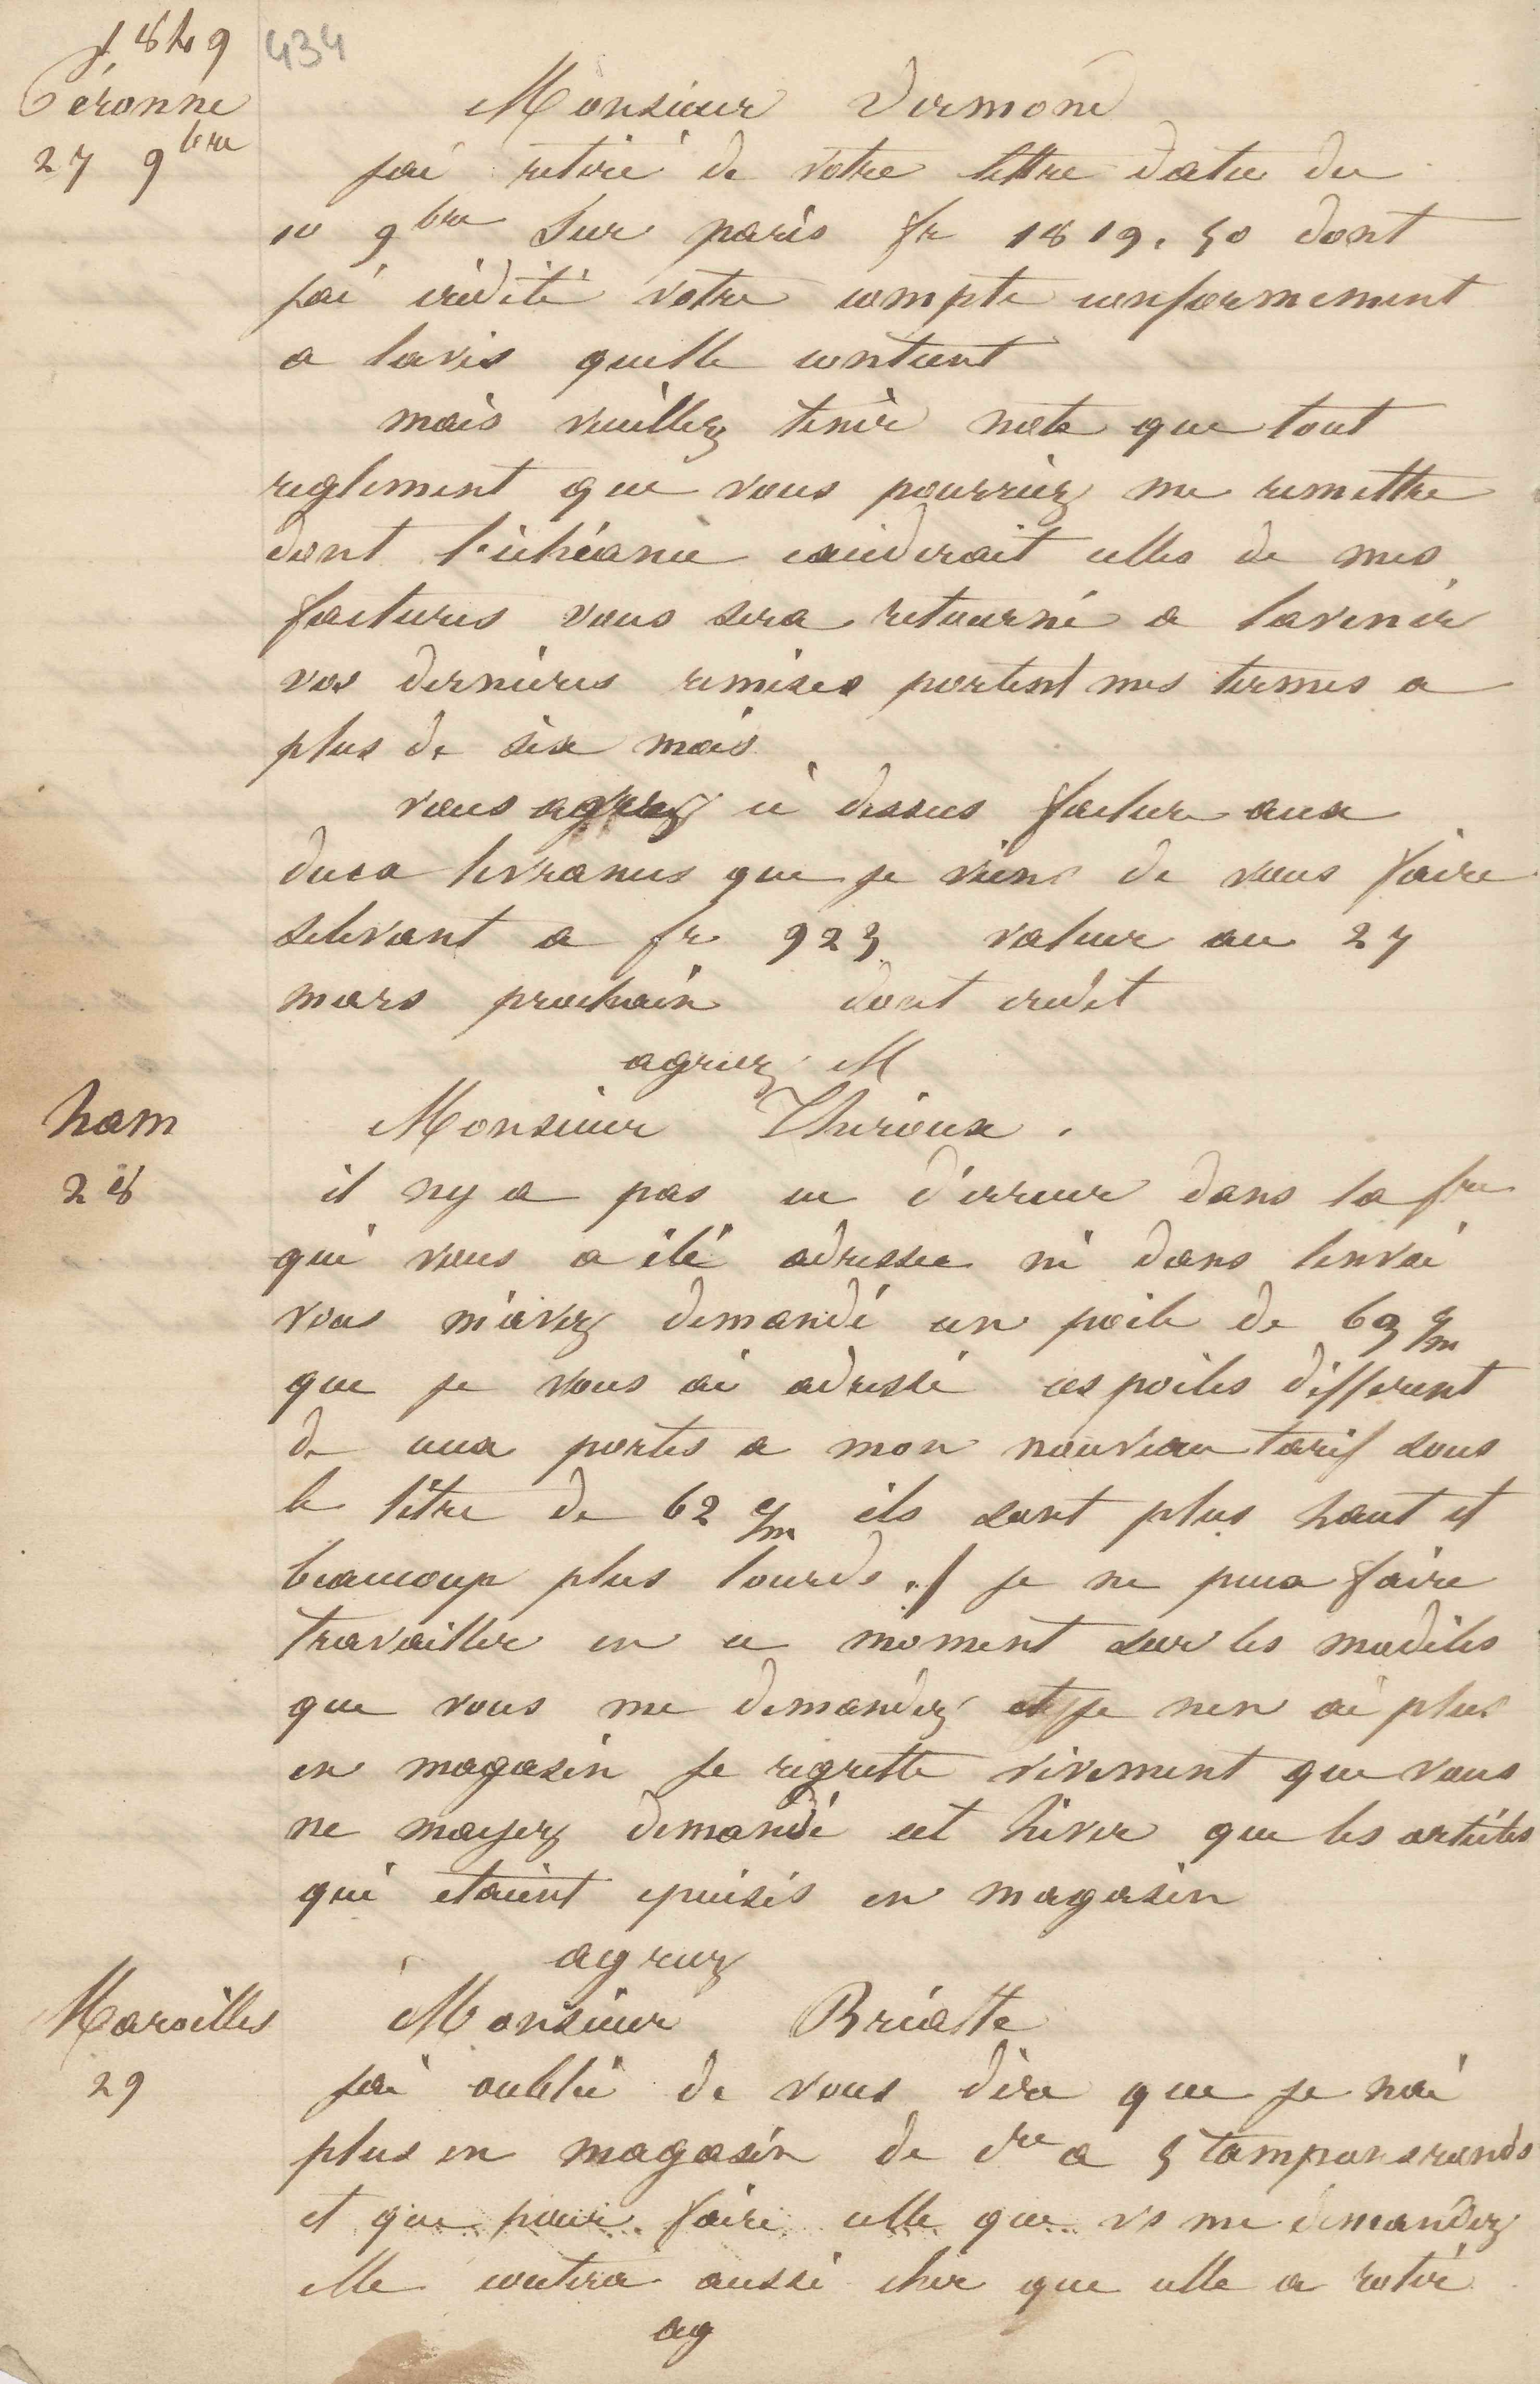 1849
434
Péronne
27 9bre
Monsieur Dermond
jai retiré de votre lettre datee du
10 9bre Sur paris fr 1819.50 dont
jai crédité votre compte conformement
a lavis quelle contient
mais veuillez tenir note que tout
reglement que vous pourriez me remettre
dont l'échéance excederait celles de mes
factures vous sera retourné a lavenir
vos dernières remises portent mes termes a
plus de six mois
vous avez ci dessus facture aux
deux livrances que je viens de vous faire
selevant a fr 923 valeur au 27
mars prochain dont credit
agreez M
ham
28
Monsieur Thirioux.
il ny a pas eu d'erreur dans la fre
qui vous a été adressee ni dans lenvoi
vous m'avez demandé un poile de 63 c/m
que je vous ai adressé ces poiles different
de ceux portes a mon nouveau tarif sous
le titre de 62 c/m ils sont plus haut et
beaucoup plus lourds ./ je ne peux faire
travailler en ce moment sur les modèles
que vous me demandez et je nen ai plus
en magasin je regrette vivement que vous
ne mayez demandé cet hiver que les articles
qui etaient epuisés en magasin
agreez
Maroilles
29
Monsieur Briatte
jai oublié de vous dire que je nai
plus en magasin de cre a 5 tampons ronds
et que pour faire celle que vs me demandez
elle coutera aussi cher que celle a rotir
ag